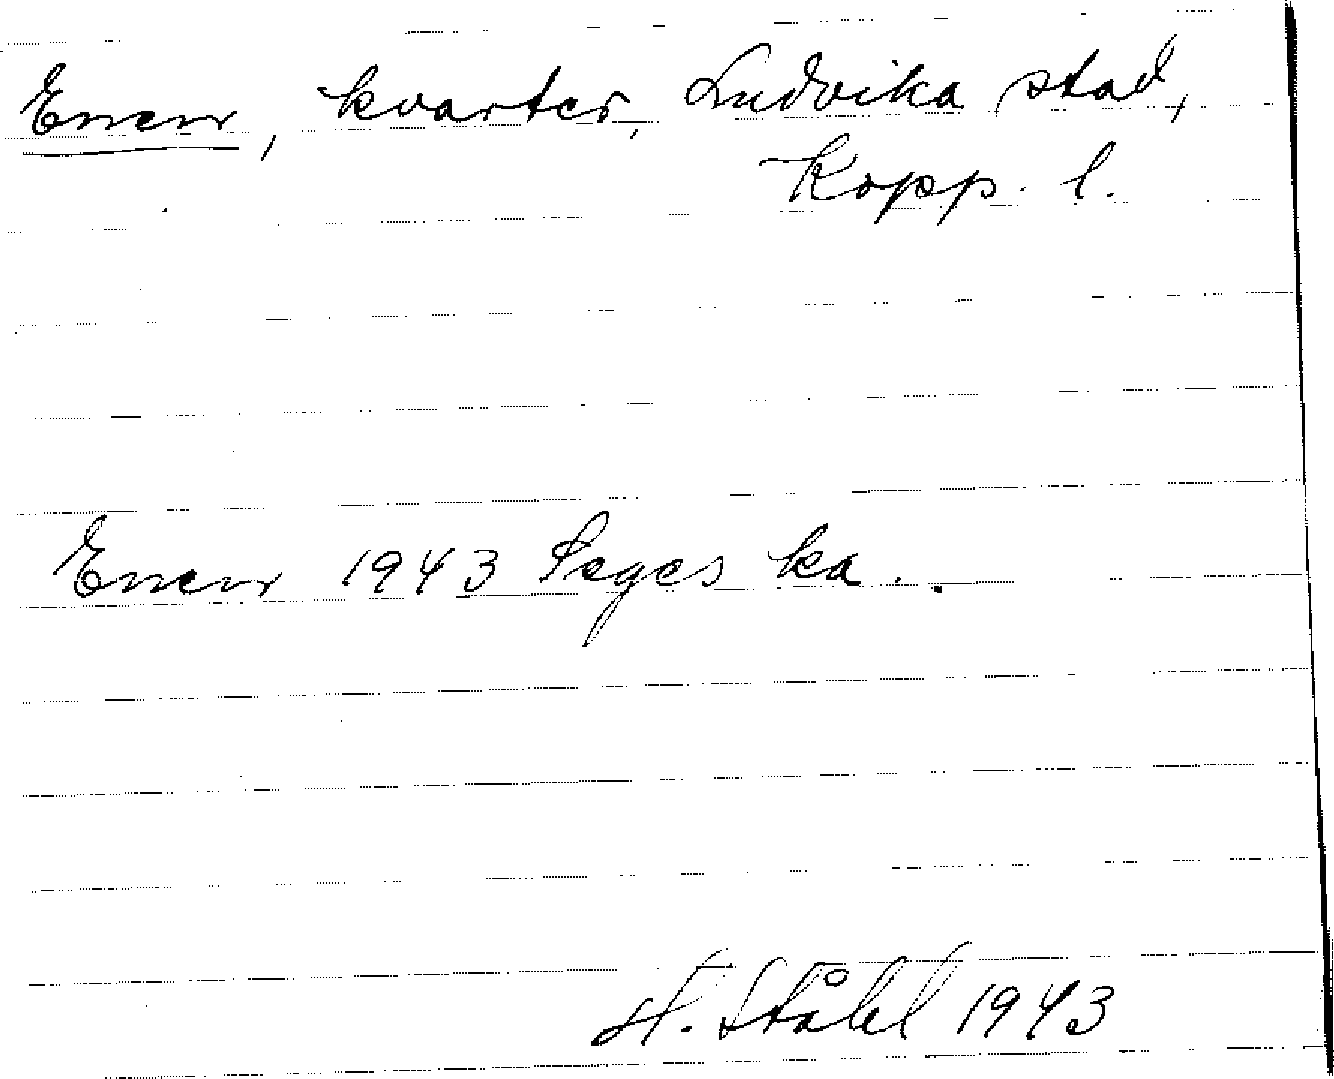 Enen, kvarter, Ludvika stad,
Kopp. l.
Enen 1943 Seges ka.
H. Ståhl 1943